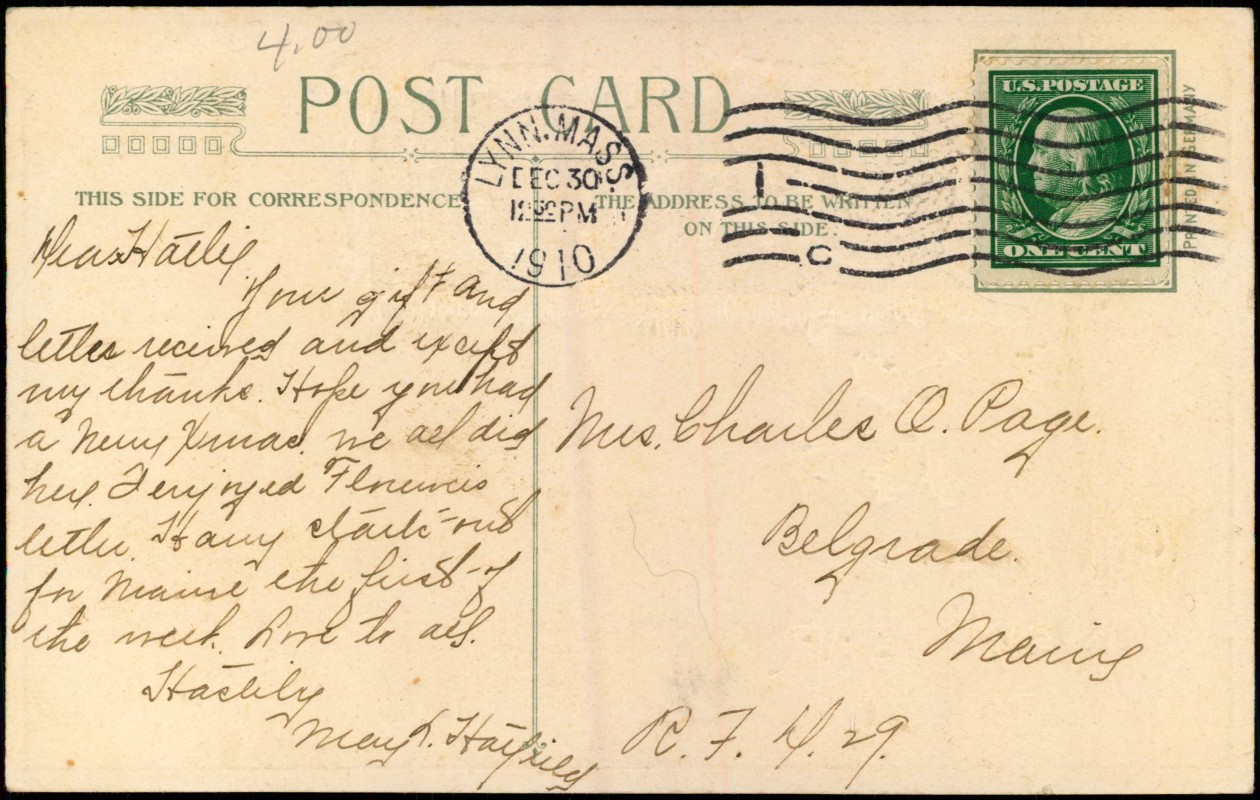 4.00
POST CARD
THIS SIDE FOR CORRESPONDENCE
THE ADDRESS TO BE WRITTEN
ON THIS SIDE.
LYNN. MASS
DEC 30
12 PM
1910
1
C
U.S. POSTAGE
ONE CENT
PRINTED IN GERMANY
Dear Hattie
Your gift and
letter received and except
my thanks. Hope you had
a Merry Xmas. we all did
here. I enjoyed Florences
letter. Harry starts out
for Maine the first of
the week. Love to all.
Hastily
May L. Hayfield
Mrs. Charles O. Page.
Belgrade.
Maine
R. F. D. 29.